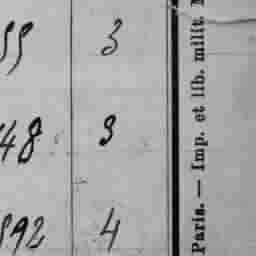 55 3
48 9
892 4
Paris. — Imp. et lib. milit.